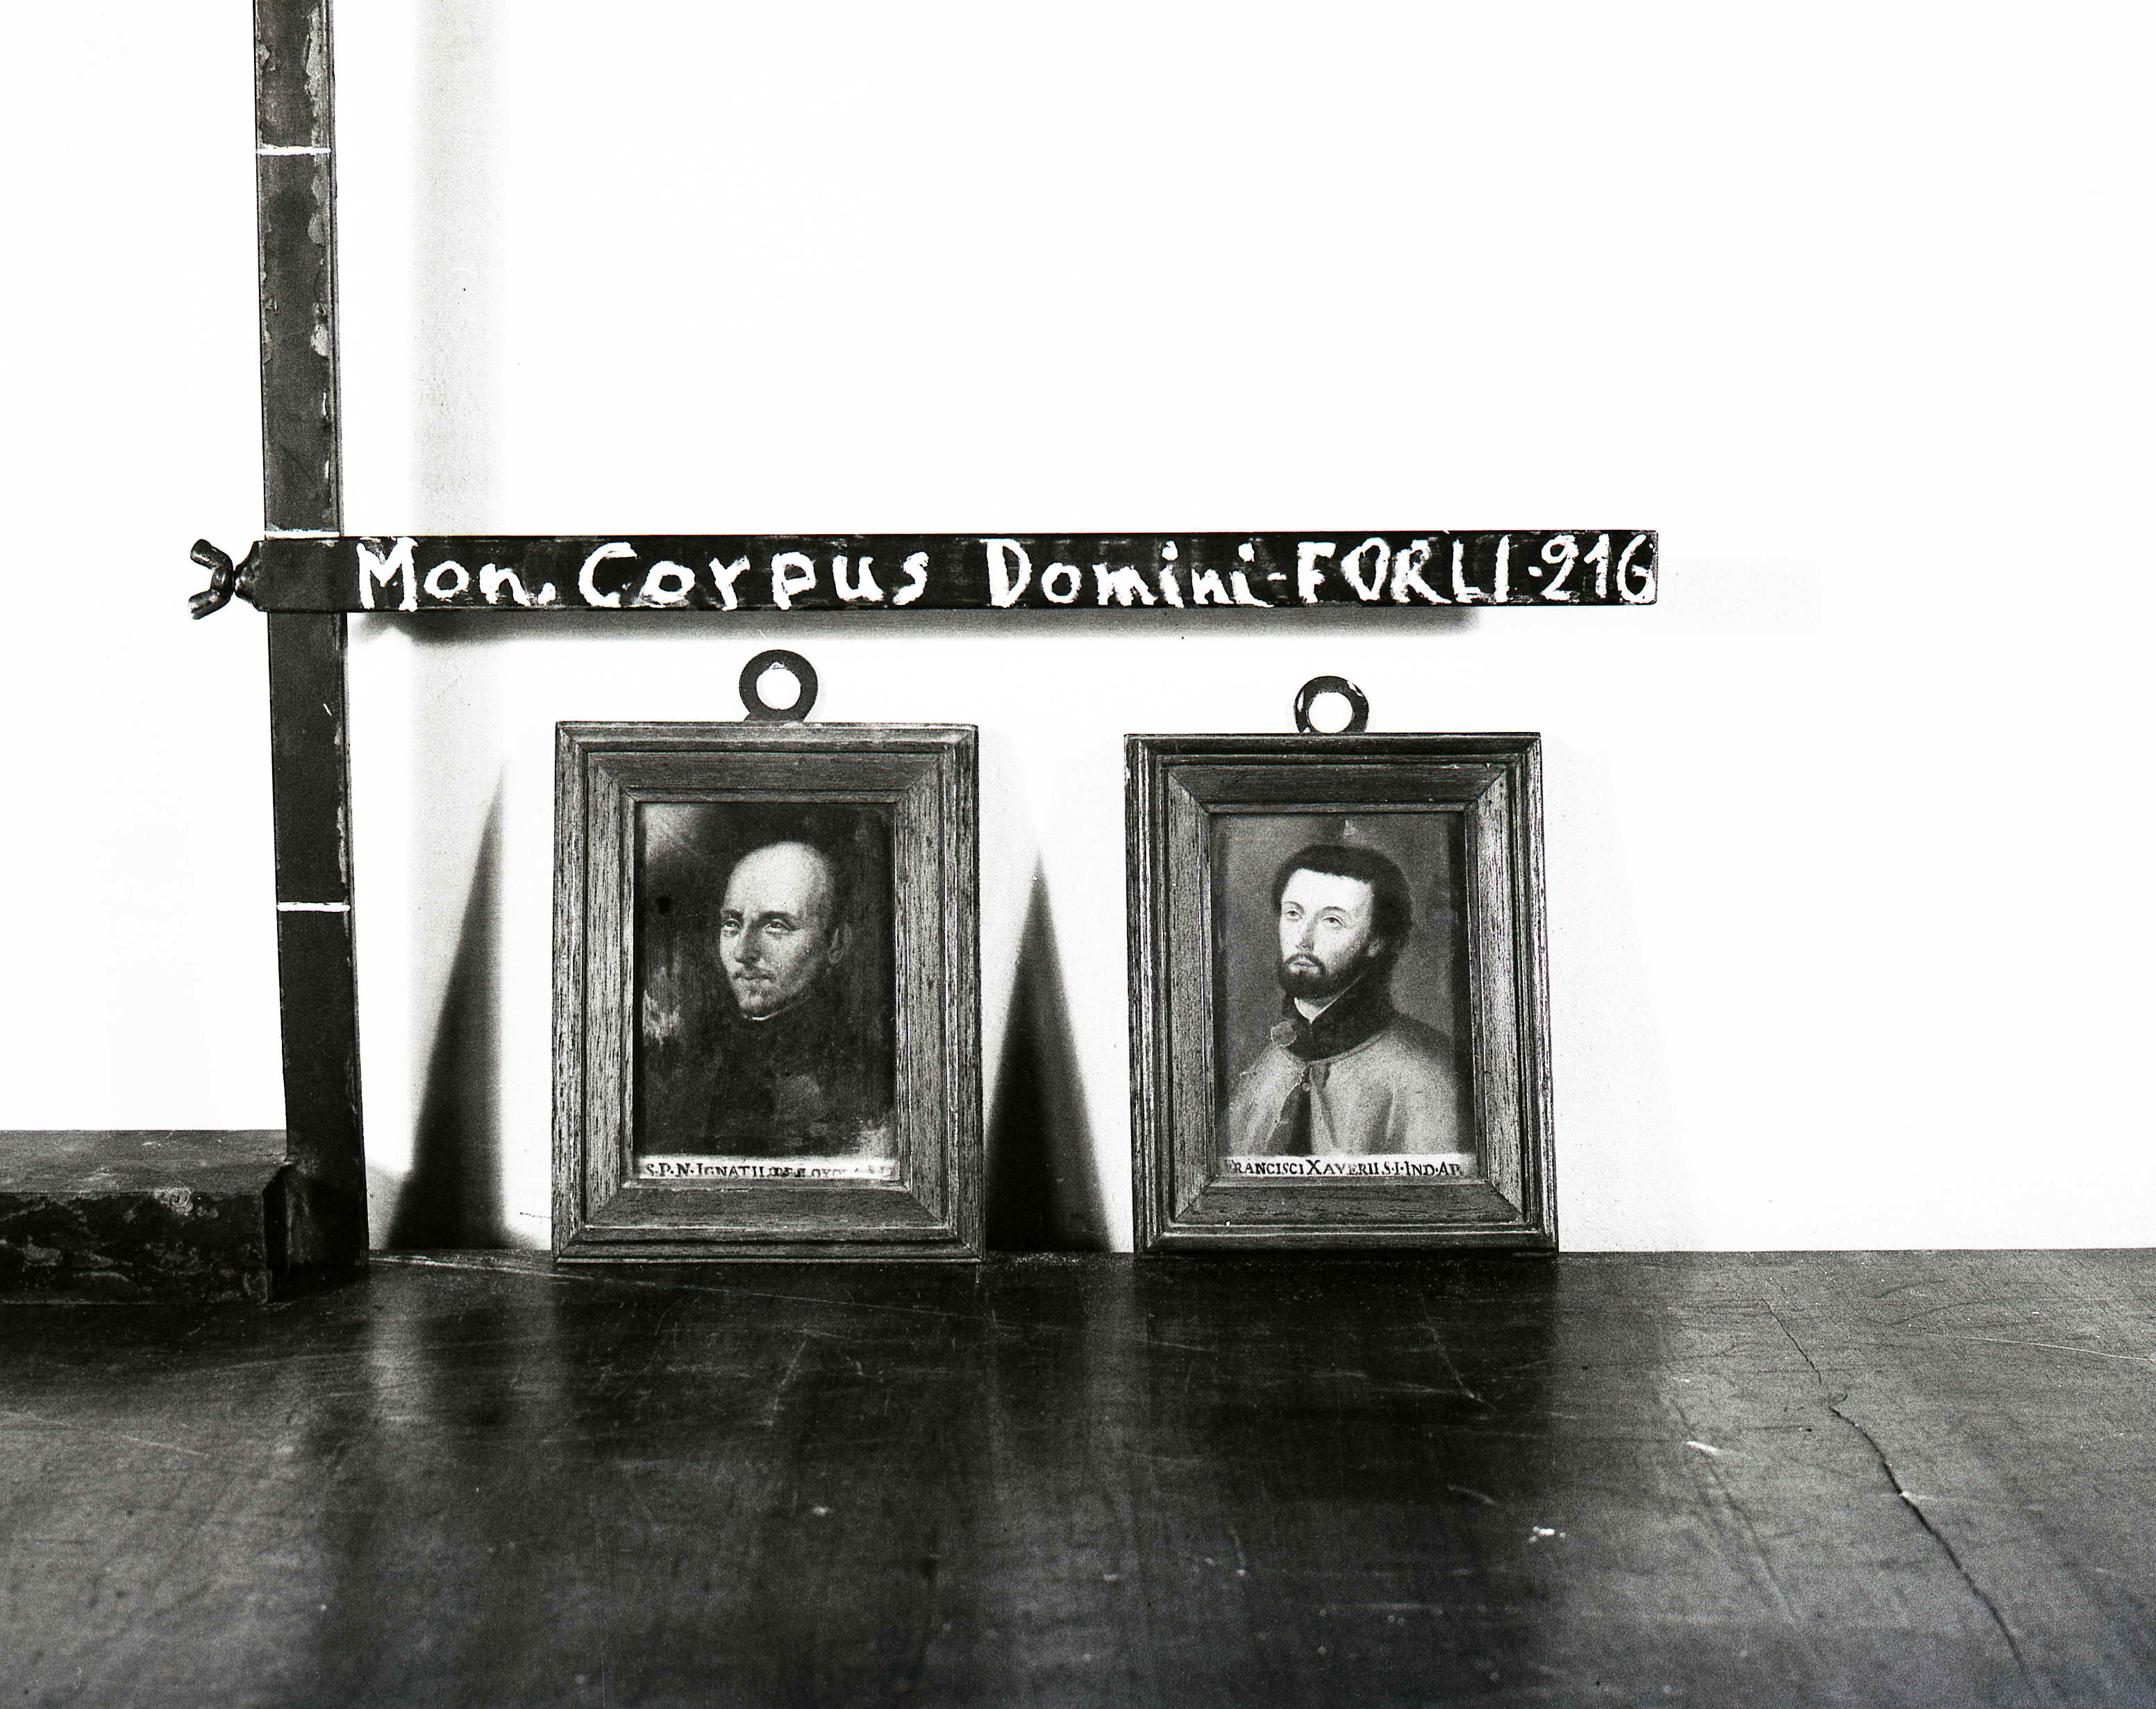 Mon. Corpus Domini-FORLI·216
S·P·N·IGNATII DE LOYOLA
FRANCISCI XAVERII S·I·IND·AP.